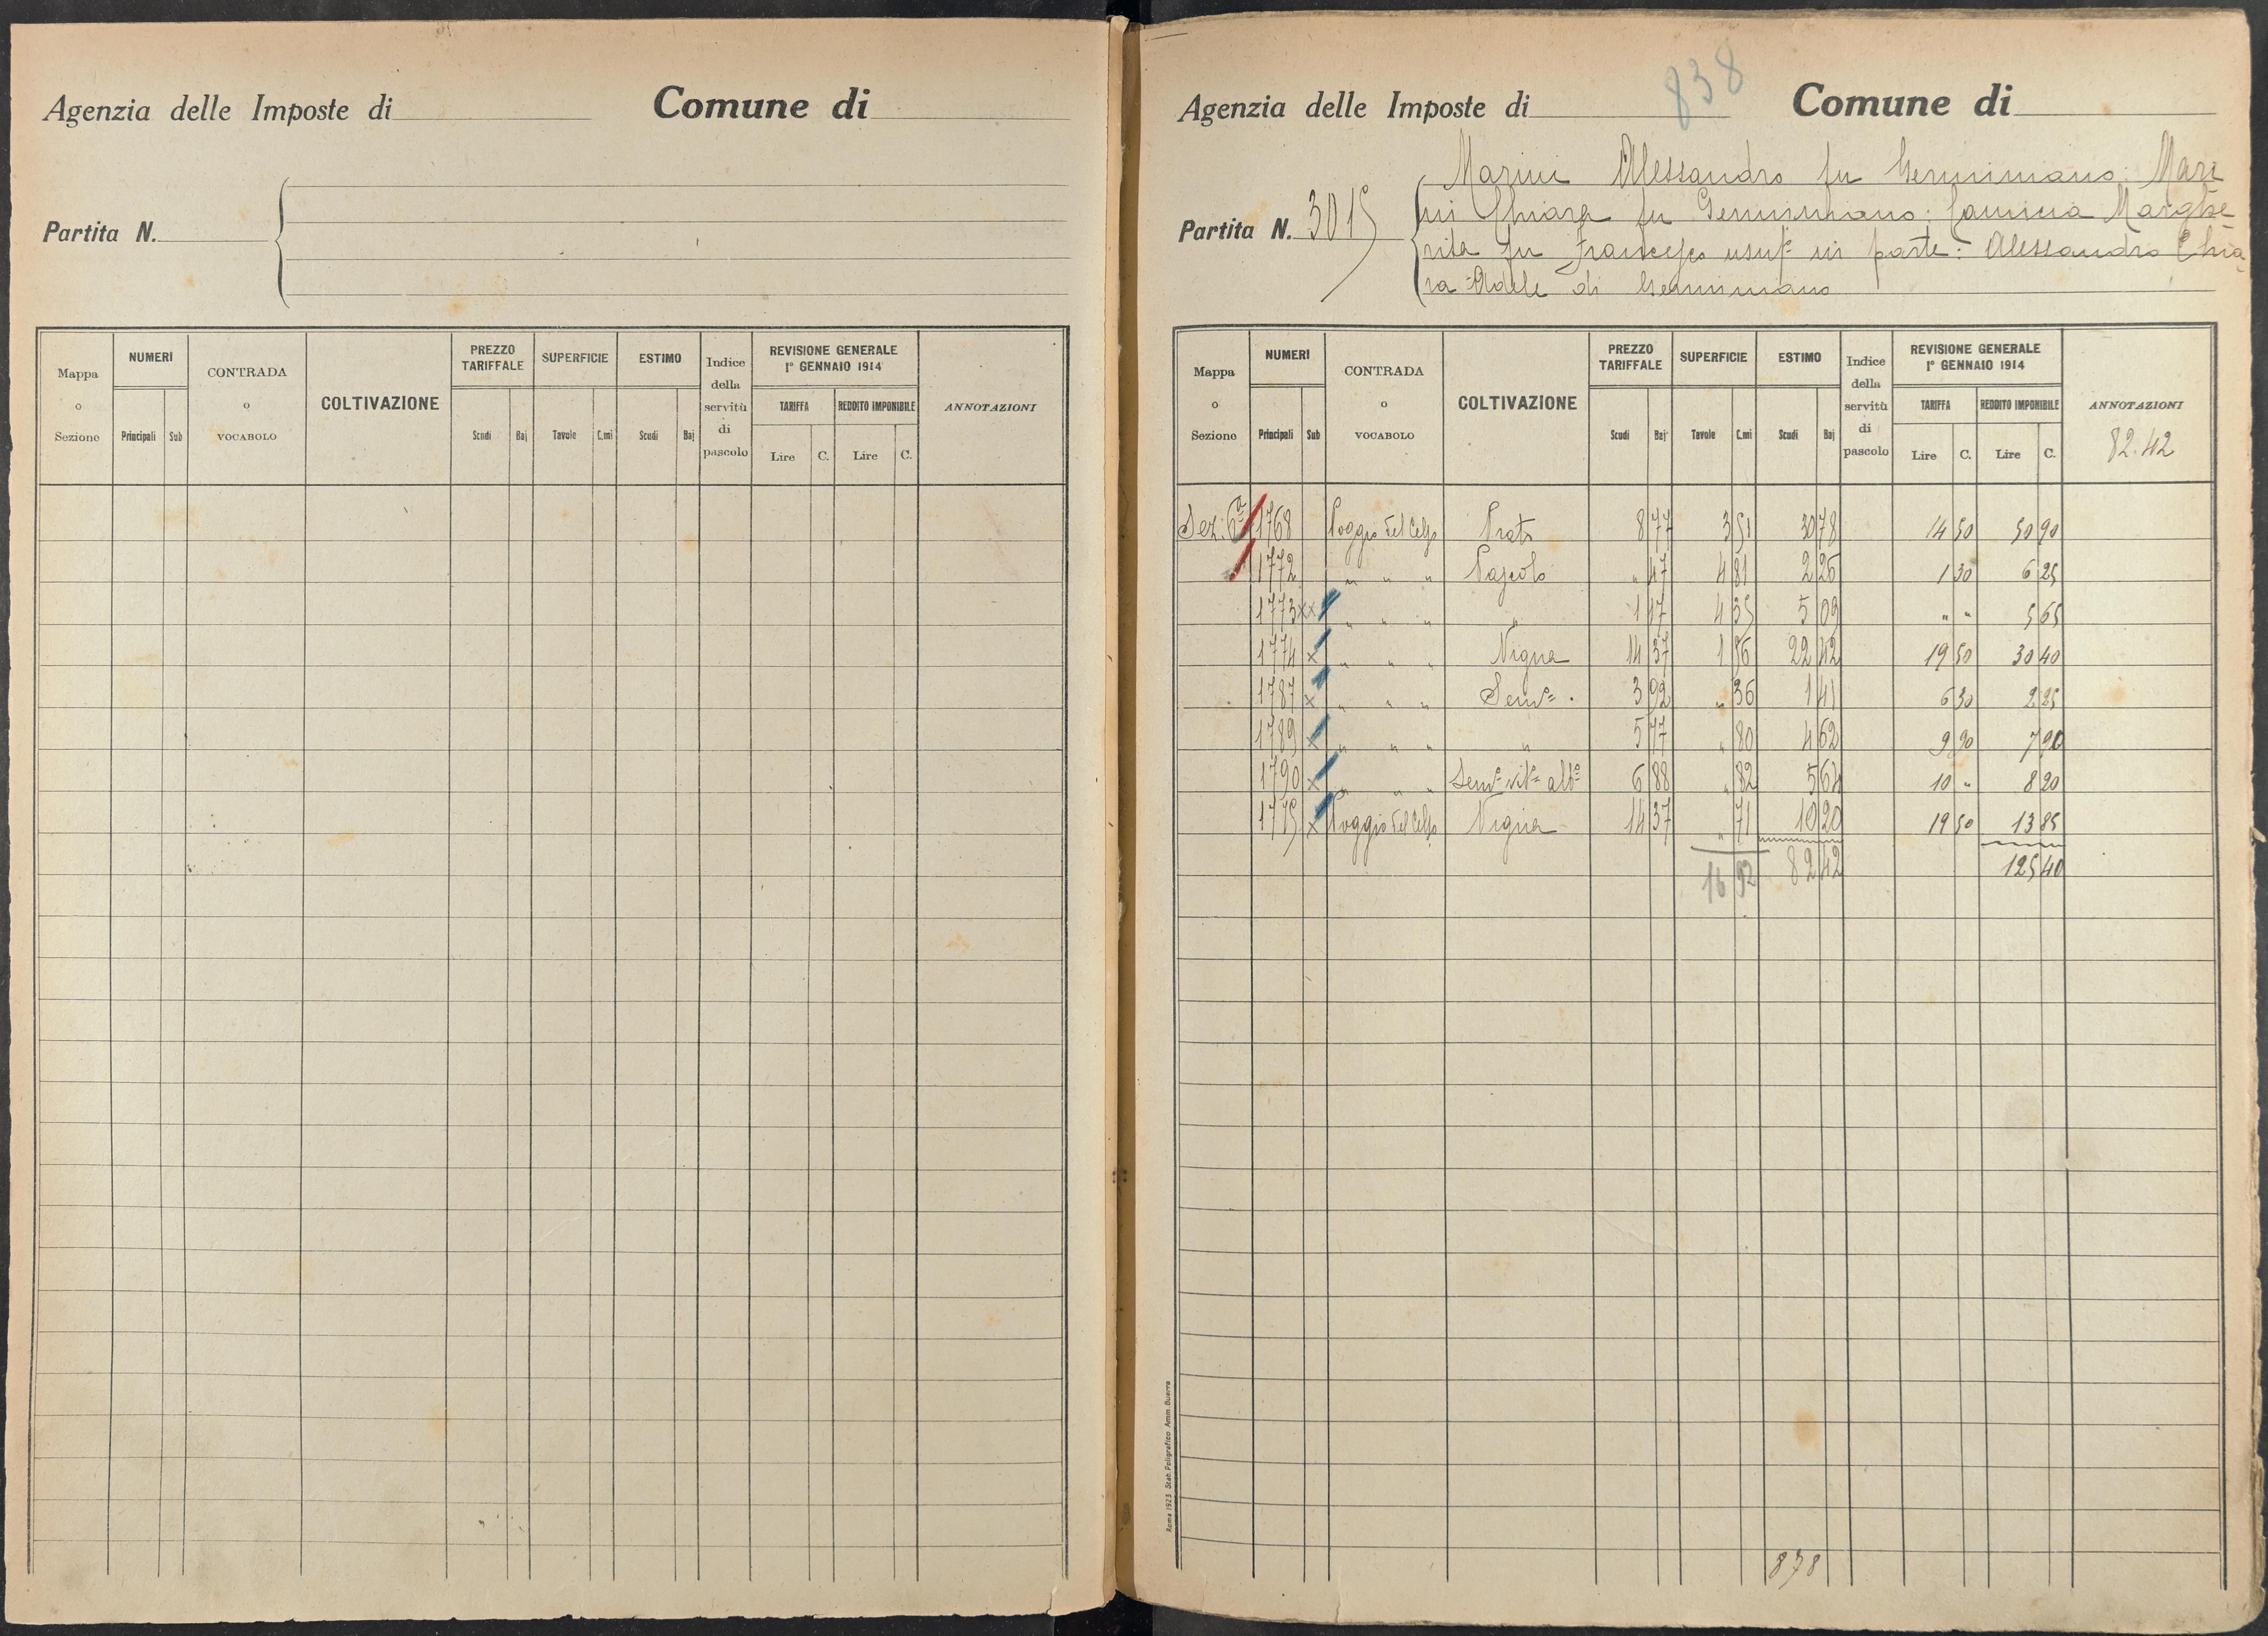 Agenzia delle Imposte di Comune di
Partita N.
Mappa o Sezione NUMERI Principali Sub CONTRADA o VOCABOLO COLTIVAZIONE PREZZO TARIFFALE Scudi Baj SUPERFICIE Tavole C.mi ESTIMO Scudi Baj Indice della servitù di pascolo REVISIONE GENERALE 1° GENNAIO 1914 TARIFFA Lire C. REDDITO IMPONIBILE Lire C. ANNOTAZIONI
838
Agenzia delle Imposte di Comune di
Marini Alessandro fu Geminiano: Mari
ni Chiara fu Geminiano:
Partita N. 3015
rita fu Francesco usuf. in parte: Alessandro Chia
ra Adele di Geminiano
Mappa o Sezione NUMERI Principali Sub CONTRADA o VOCABOLO COLTIVAZIONE PREZZO TARIFFALE Scudi Baj SUPERFICIE Tavole C.mi ESTIMO Scudi Baj Indice della servitù di pascolo REVISIONE GENERALE 1° GENNAIO 1914 TARIFFA Lire C. REDDITO IMPONIBILE Lire C. ANNOTAZIONI
82.42
Sez. 6ª 1768 Poggio del Celso Prato 8 77 3 51 30 78 14 50 50 90
1772 " " " Pascolo " 47 4 81 2 26 1 30 6 25
1773 x x " " " " 1 17 4 35 5 09 " " 5 65
1774 x " " " Vigna 14 37 1 56 22 42 19 50 30 40
1787 x " " " Semve . 3 92 " 36 1 41 6 30 2 25
1789 x " " " " 5 77 " 80 4 62 9 90 7 90
1790 x " " " Semve vite albe 6 88 " 82 5 64 10 " 8 20
1775 x Poggio del Celso Vigna 14 37 " 71 10 20 19 50 13 85
16 92 82 42 125 40
Roma 1923 Stab. Poligrafico Amm. Guerra
838